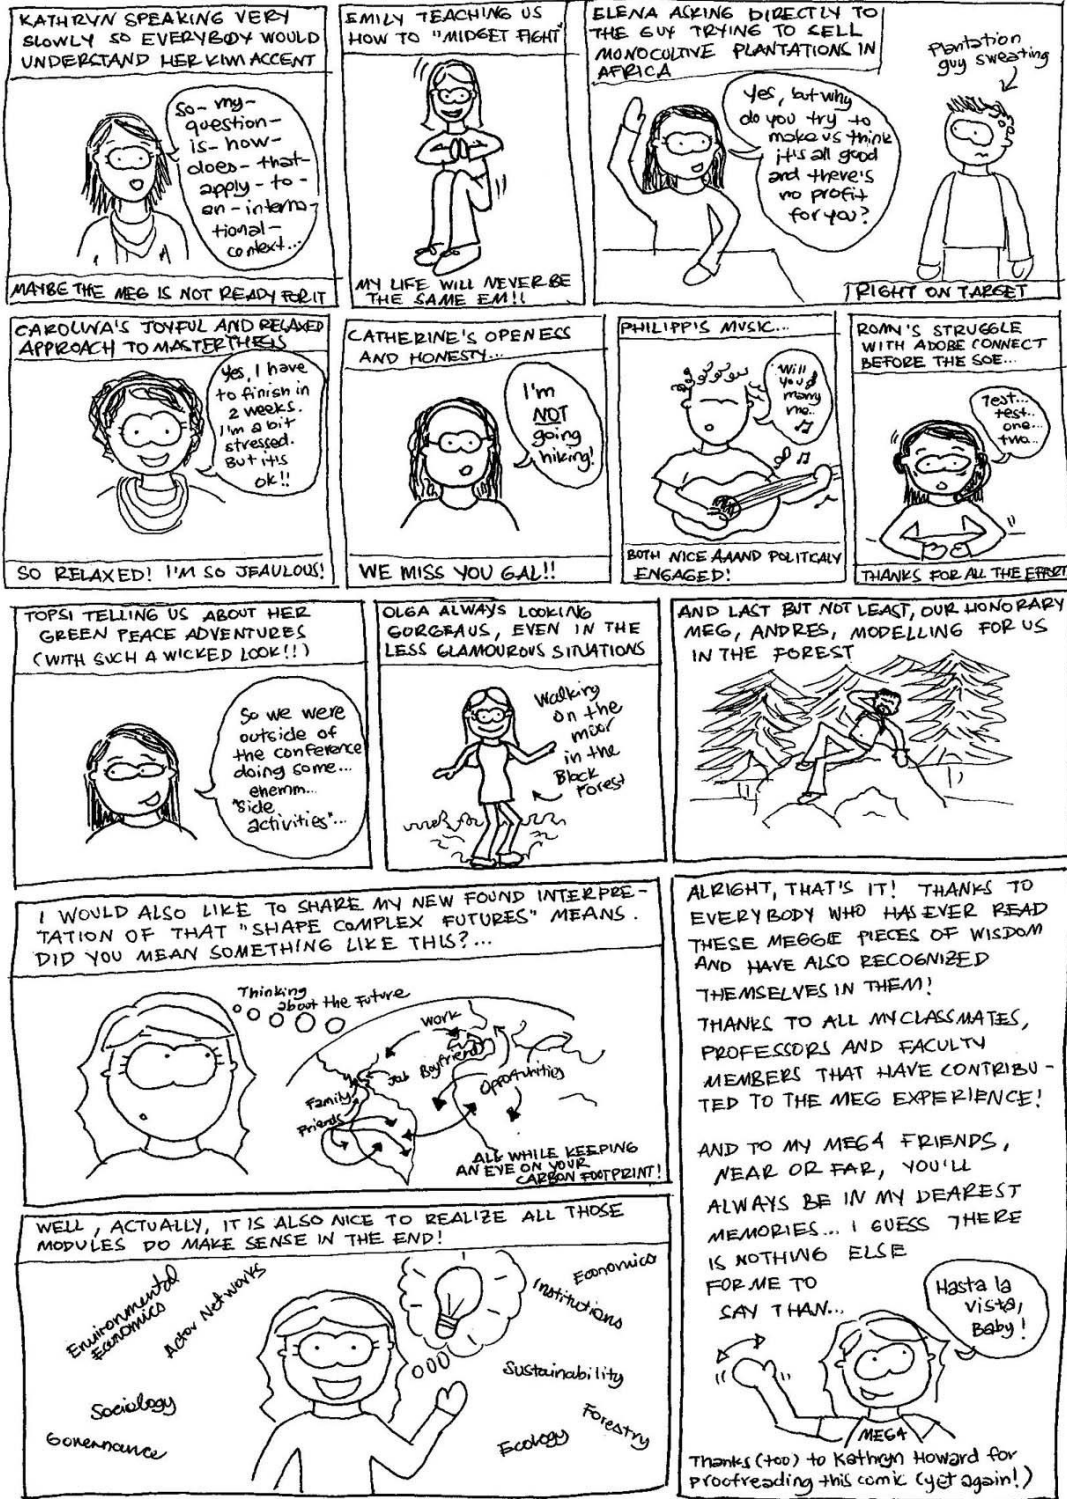 KATHRYN SPEAKING VERY
SLOWLY SO EVERYBODY WOULD
UNDERSTAND HER KIWI ACCENT
So-my-
question-
is-how-
does-that-
apply-to-
an-interna-
tional-
context...
MAYBE THE MEG IS NOT READY FOR IT
EMILY TEACHING US
HOW TO "MIDGET FIGHT"
MY LIFE WILL NEVER BE
THE SAME EM!!
ELENA ASKING DIRECTLY TO
THE GUY TRYING TO SELL
MONOCULTIVE PLANTATIONS IN
AFRICA
Plantation
guy sweating
Yes, but why
do you try to
make us think
it's all good
and there's
no profit
for you?
RIGHT ON TARGET
CAROLINA'S JOYFUL AND RELAXED
APPROACH TO MASTERTHESIS
Yes, I have
to finish in
2 weeks.
I'm a bit
stressed.
But it's
ok!!
SO RELAXED! I'M SO JEAULOUS!
CATHERINE'S OPENESS
AND HONESTY...
I'm
NOT
going
hiking!
WE MISS YOU GAL!!
PHILIPP'S MUSIC...
Will
you
marry
me..
BOTH NICE AAAND POLITICALY
ENGAGED!
ROMY'S STRUGGLE
WITH ADOBE CONNECT
BEFORE THE SOE...
Test...
test..
one...
two...
THANKS FOR ALL THE EFFORT
TOPSI TELLING US ABOUT HER
GREEN PEACE ADVENTURES
(WITH SUCH A WICKED LOOK!!)
So we were
outside of
the conference
doing some...
ehemm...
"side
activities"...
OLGA ALWAYS LOOKING
GORGEAUS, EVEN IN THE
LESS GLAMOUROUS SITUATIONS
Walking
on the
moor
in the
Black
Forest
AND LAST BUT NOT LEAST, OUR HONORARY
MEG, ANDRES, MODELLING FOR US
IN THE FOREST
I WOULD ALSO LIKE TO SHARE MY NEW FOUND INTERPRE-
TATION OF THAT "SHAPE COMPLEX FUTURES" MEANS.
DID YOU MEAN SOMETHING LIKE THIS?...
Thinking
about the Future
Work
Job
Boyfriend
Opportunities
Family
Friends
ALL WHILE KEEPING
AN EYE ON YOUR
CARBON FOOTPRINT!
WELL, ACTUALLY, IT IS ALSO NICE TO REALIZE ALL THOSE
MODULES DO MAKE SENSE IN THE END!
Environmental
Economics
Actor Networks
Sociology
Governance
Economics
Institutions
Sustainability
Forestry
Ecology
ALRIGHT, THAT'S IT! THANKS TO
EVERYBODY WHO HAS EVER READ
THESE MEGGIE PIECES OF WISDOM
AND HAVE ALSO RECOGNIZED
THEMSELVES IN THEM!
THANKS TO ALL MY CLASSMATES,
PROFESSORS AND FACULTY
MEMBERS THAT HAVE CONTRIBU-
TED TO THE MEG EXPERIENCE!
AND TO MY MEG4 FRIENDS,
NEAR OR FAR, YOU'LL
ALWAYS BE IN MY DEAREST
MEMORIES... I GUESS THERE
IS NOTHING ELSE
FOR ME TO
SAY THAN...
Hasta la
vista,
Baby!
MEG4
Thanks (too) to Kathryn Howard for
proofreading this comic (yet again!)